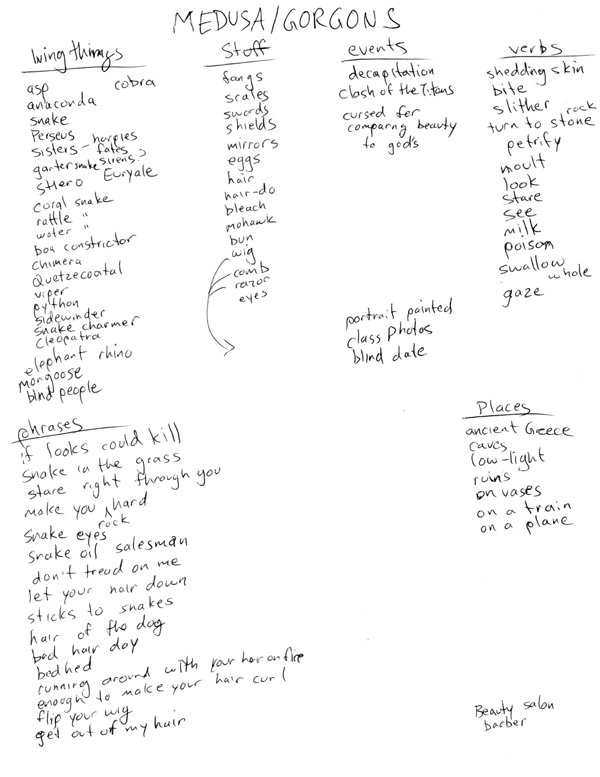 MEDUSA/GORGONS
living things
asp cobra
anaconda
snake
Perseus
sisters - harpies
fates
garter snake sirens?
sthero Euryale
coral snake
rattle "
water "
boa constrictor
chimera
Quetzecoatal
viper
python
sidewinder
snake charmer
Cleopatra
elephant rhino
mongoose
blind people
Stuff
fangs
scales
swords
shields
mirrors
eggs
hair
hair-do
bleach
mohawk
bun
wig
comb
razor
eyes
events
decapitation
Clash of the Titans
cursed for
comparing beauty
to god's
portrait painted
class photos
blind date
verbs
shedding skin
bite
slither rock
turn to stone
petrify
moult
look
stare
see
milk
poison
swallow
whole
gaze
phrases
if looks could kill
snake in the grass
stare right through you
make you hard
rock
snake eyes
snake oil salesman
don't tread on me
let your hair down
sticks to snakes
hair of the dog
bad hair day
bedhed
running around with your hair on fire
enough to make your hair curl
flip your wig
get out of my hair
Places
ancient Greece
caves
low-light
ruins
on vases
on a train
on a plane
Beauty salon
barber